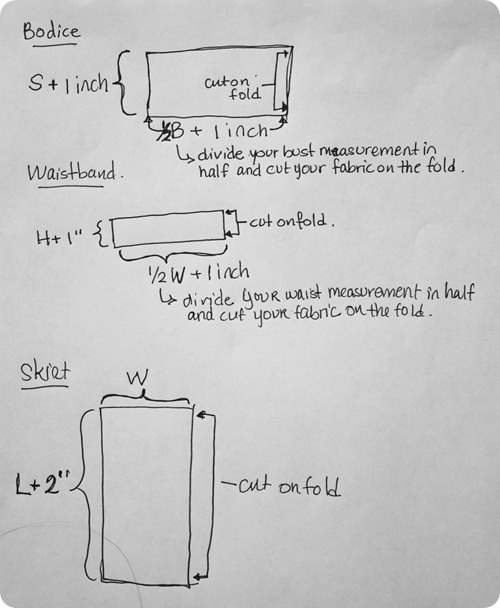 Bodice
S + 1 inch
cut on
fold
½B + 1 inch
↳ divide your bust measurement in
half and cut your fabric on the fold.
Waistband.
H+1"
cut on fold.
½ W + 1 inch
↳ divide your waist measurement in half
and cut your fabric on the fold.
Skirt
W
L+2"
cut on fold